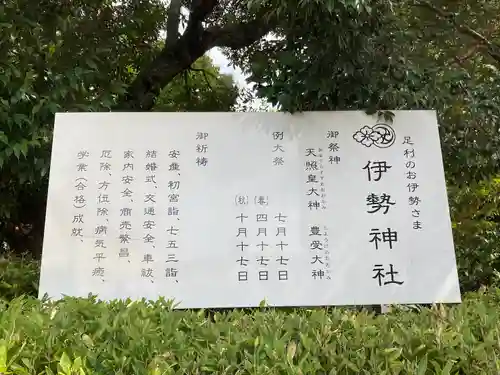 足利のお伊勢さま
伊勢神社
御祭神
天照皇大神
あまてらすすめおおみかみ
豊受大神
とようけのおおかみ
例大祭
七月十七日
(春) 四月十七日
(秋) 十月十七日
御祈祷
安産、初宮詣、七五三詣、
結婚式、交通安全、車祓、
家内安全、商売繁昌、
厄除、方位除、病気平癒、
学業(合格)成就、